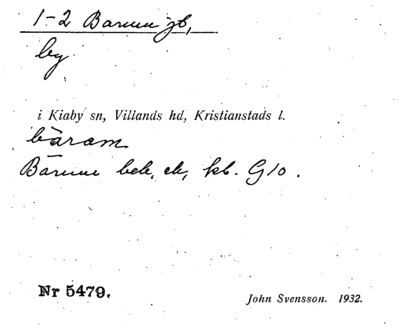 1-2 Barum jb,
by
i Kiaby sn, Villands hd, Kristianstads l.
bāram
Barum bek, ek, kb. G10.
Nr 5479.
John Svensson. 1932.